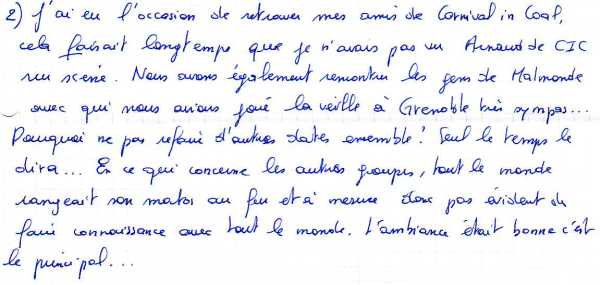 2) J'ai eu l'occasion de retrouver mes amis de Carnival in Coal,
cela faisait longtemps que je n'avais pas vu Arnaud de CIC
sur scène. Nous avons également rencontrer les gens de Malmonde
avec qui nous avions joué la veille à Grenoble très sympas...
Pourquoi ne pas refaire d'autres dates ensemble! Seul le temps le
dira... En ce qui concerne les autres groupes, tout le monde
rangeait son matos au fur et à mesure donc pas évident de
faire connaissance avec tout le monde. L'ambiance était bonne c'est
le principal...